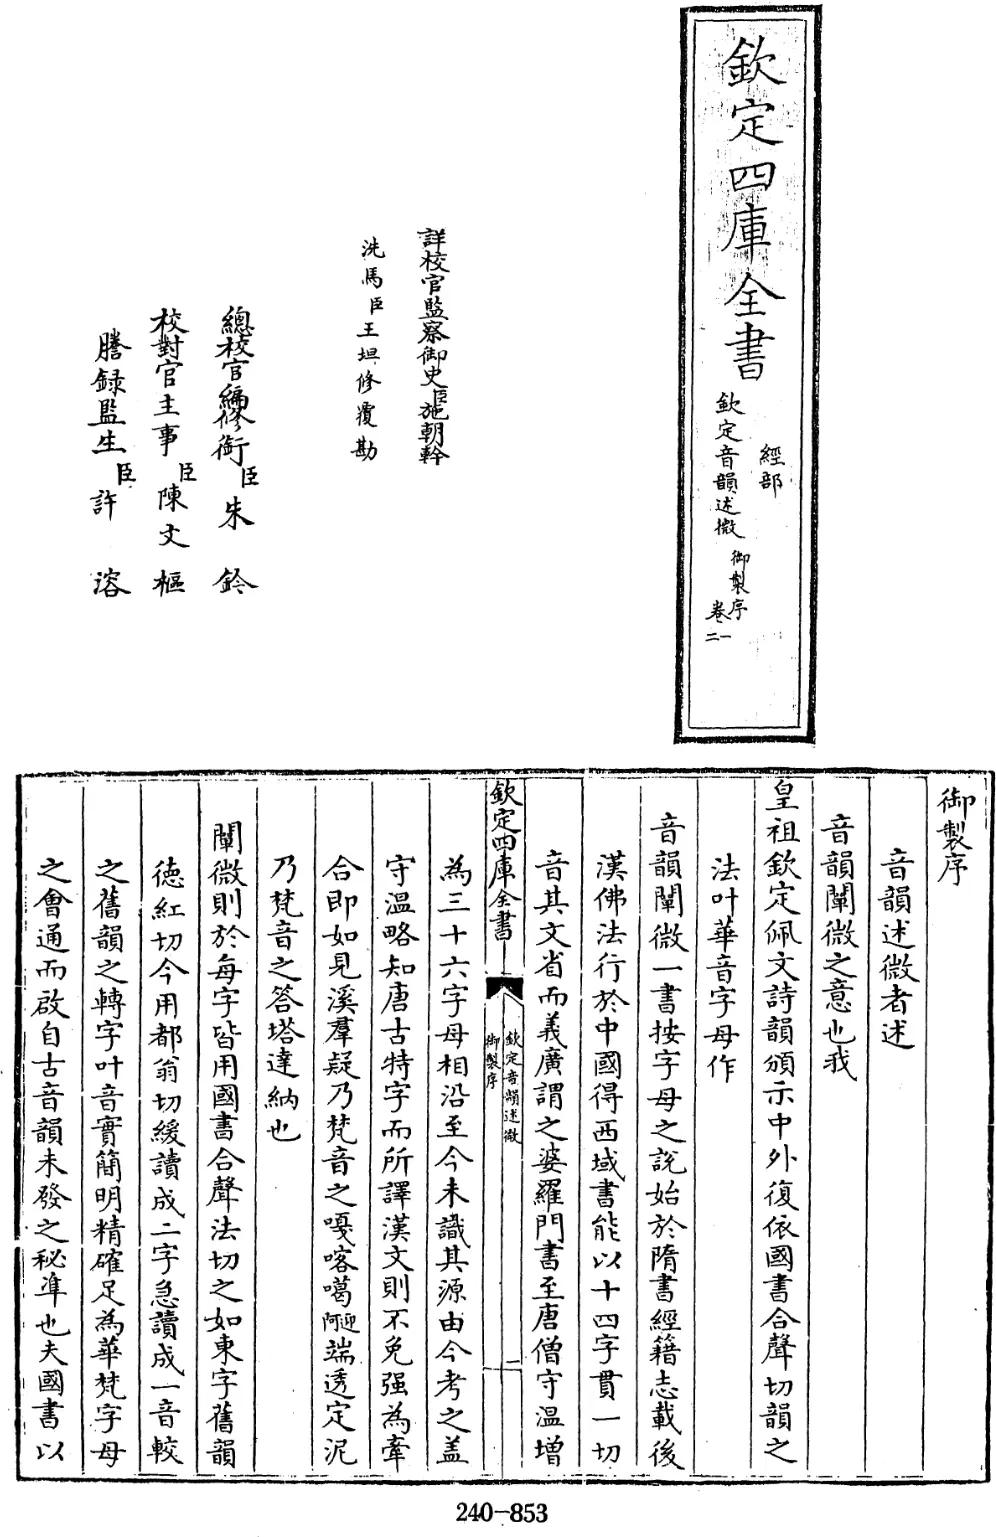 欽定四庫全書
經部
欽定音韻述微 御製序
卷一
二
詳校官監察御史臣施朝幹
洗馬臣王坦修覆勘
總校官編修銜臣朱鈐
校對官主事臣陳文樞
謄録監生臣許溶
御製序
音韻述微者述
音韻闡微之意也我
皇祖欽定佩文詩韻頒示中外復依國書合聲切韻之
法叶華音字母作
音韻闡微一書按字母之說始於隋書經籍志載後
漢佛法行於中國得西域書能以十四字貫一切
音其文省而義廣謂之婆羅門書至唐僧守溫增
欽定四庫全書
欽定音韻述微
御製序
二
為三十六字母相沿至今未識其源由今考之蓋
守溫略知唐古特字而所譯漢文則不免强為牽
合即如見溪羣疑乃梵音之嘎喀噶阿迎端透定泥
乃梵音之答塔達納也
闡微則於每字皆用國書合聲法切之如東字舊韻
徳紅切今用都翁切緩讀成二字急讀成一音較
之舊韻之轉字叶音實簡明精確足為華梵字母
之會通而啟自古音韻未發之秘凖也夫國書以
240-853